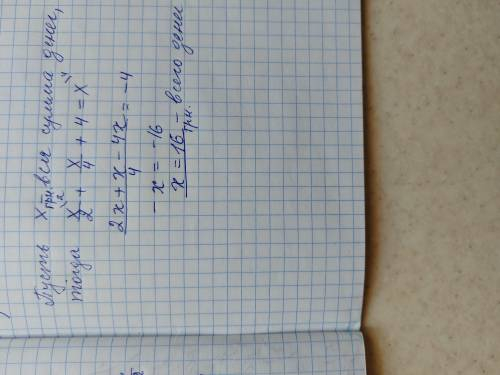 Пусть x грн. – вся сумма денег,
тогда x/2 + x/4 + 4 = x
2x + x – 4x / 4 = –4
–x = –16
x = 16 грн. – всего денег